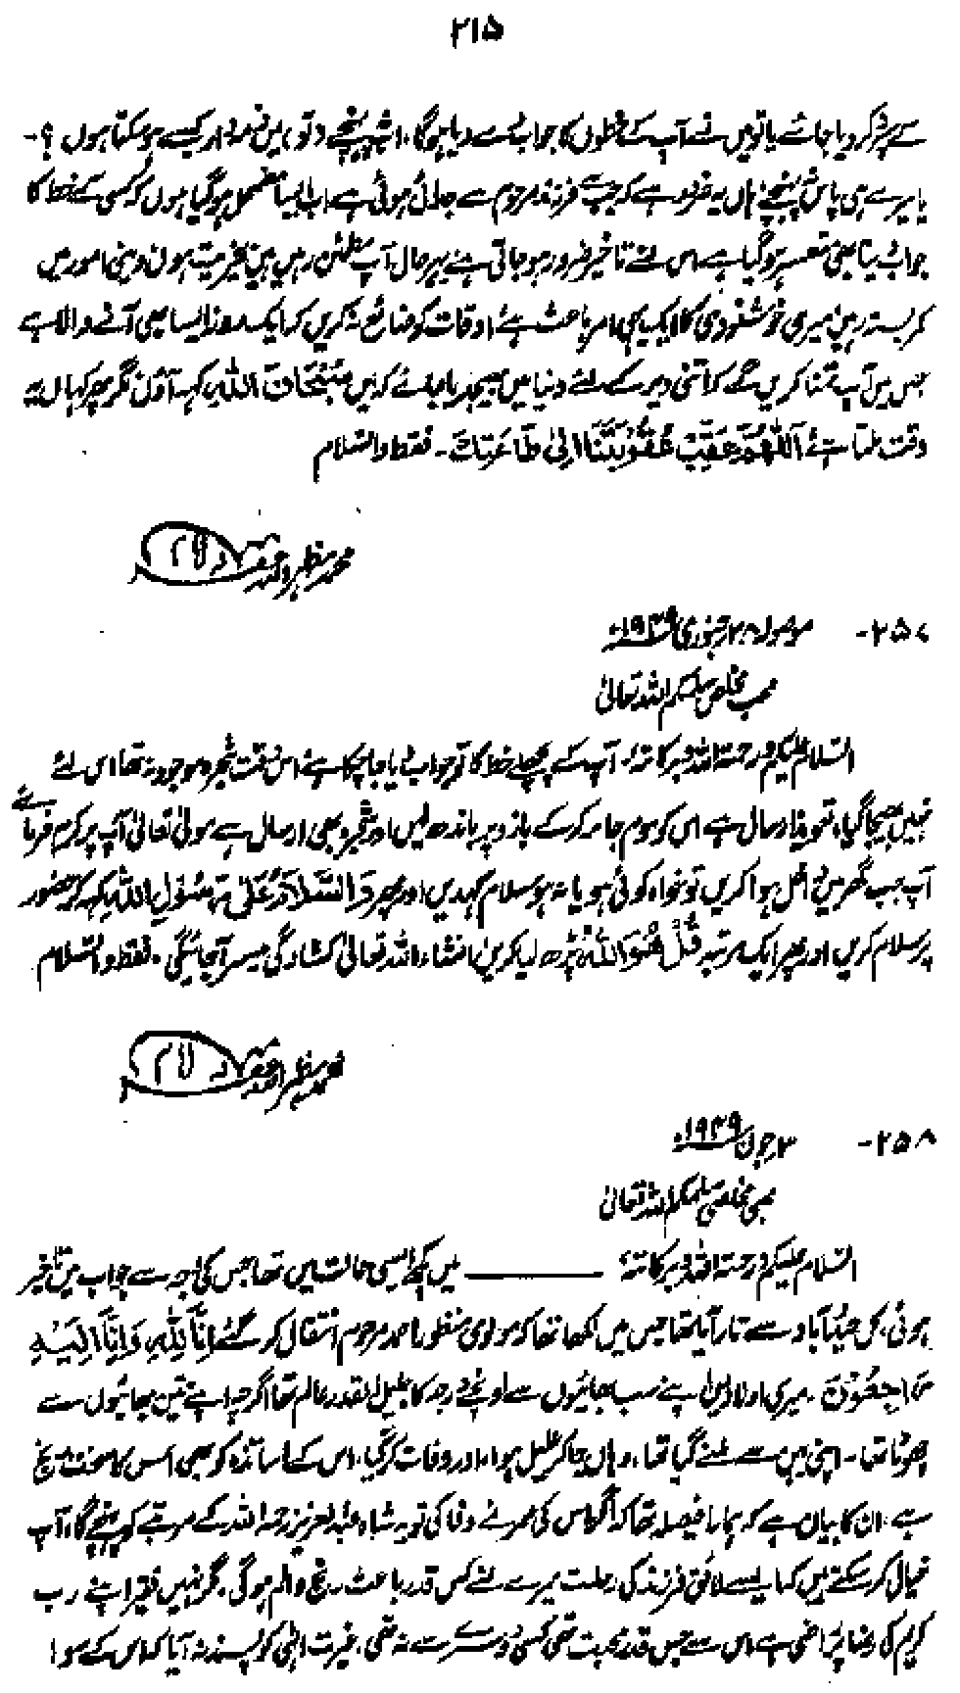 ۲۱۵
سے پتہ کر دیا جائے یا تو میں نے آپ کے خطوں کا جواب نے دیا ہوگا، پہنچے دتو میں ذمہ دار کیسے ہو سکتا ہوں ؟۔
یا میرے ہی پاس پہنچے ہاں یہ ضرور ہے کہ جب سے فرزند مرحوم سے جدائی ہوئی ہے اب ایسا مضمحل ہو گیا ہوں کہ کسی کے خط کا
جواب دینا بھی متعسر ہو گیا ہے اس لئے تاخیر ضرور ہو جاتی ہے بہر حال آپ مطمئن رہیں میں بخیریت ہوں دینی امور میں
کمر بستہ رہیں میری خوشنودی کا ایک یہی امر باعث ہے اوقات کو ضائع نہ کریں کہ ایک روز ایسا بھی آنے والا ہے
جس میں آپ تمنا کریں گے کہ اتنی دیر کے لئے دنیا میں بھیجدیا جائے کہ میں سُبْحَانَ اللہِ کہہ آؤں مگر پھر کہاں یہ
وقت ملتا ہے اَللّٰھُمَّ عَقِّبْ عُقُوْبَتَنَا اِلیٰ طَاعَتِکَ ۔ فقط والسلام
محمد مظہر اللہ غفرلہ
۲۵۷- موصولہ ۲۸ جنوری ۱۹۴۹ء
محب مخلص سلمکم اللہ تعالیٰ
السلام علیکم ورحمۃ اللہ وبرکاتہٗ، آپ کے پچھلے خط کا تو جواب دیا جا چکا ہے اس وقت شجرہ موجود نہ تھا اس لئے
نہیں بھیجا گیا، تعویذ ارسال ہے اس کو موم جامہ کر کے بازو پر باندھ لیں اور شجرہ بھی ارسال ہے مولیٰ تعالیٰ آپ پر کرم فرمائے
آپ جب گھر میں داخل ہوا کریں تو خواہ کوئی ہو یا نہ ہو سلام کہدیں اور پھر وَالسَّلَامُ عَلیٰ رَسُوْلِ اللہِ کہہ کر حضور
پر سلام کریں اور پھر ایک مرتبہ قُلْ ھُوَاللہُ پڑھ لیا کریں انشاء اللہ تعالیٰ کشادگی میسر آجائیگی ۔ فقط والسلام
محمد مظہر اللہ غفرلہ
۲۵۸- ۳ جون ۱۹۴۹ء
محبی مخلصی سلمکم اللہ تعالیٰ
السلام علیکم ورحمۃ اللہ وبرکاتہٗ ——— میں کچھ ایسی حالت میں تھا جس کی وجہ سے جواب میں تاخیر
ہوئی، کل حیدآباد سے تار آیا تھا جس میں لکھا تھا کہ مولوی منظور احمد مرحوم انتقال کر گئے اِنَّا لِلّٰہِ وَاِنَّا اِلَیْہِ
رَاجِعُوْنَ ۔ میری اولاد میں اپنے سب بھائیوں سے اونچے درجہ کا جلیل القدر عالم تھا اگرچہ اپنے تین بھائیوں سے
چھوٹا تھا ۔ اپنی بہن سے ملنے گیا تھا، وہاں جا کر علیل ہوا، اور وفات کر گیا، اس کے اساتذہ کو بھی اس کا سخت رنج
ہے، ان کا بیان ہے کہ ہمارا فیصلہ تھا کہ اگر اس کی عمر نے وفا کی تو یہ شاہ عبدالعزیز رحمۃ اللہ کے مرتبے کو پہنچے گا، آپ
خیال کر سکتے ہیں کہ ایسے لائق فرزند کی رحلت میرے لئے کس قدر باعث رنج و الم ہوگی، مگر نہیں فقیر اپنے رب
کریم کی رضا پر راضی ہے، اس سے جس قدر محبت تھی کسی دوسرے سے نہ تھی، غیرت الٰہی کو پسند نہ آیا کہ اس کے سوا